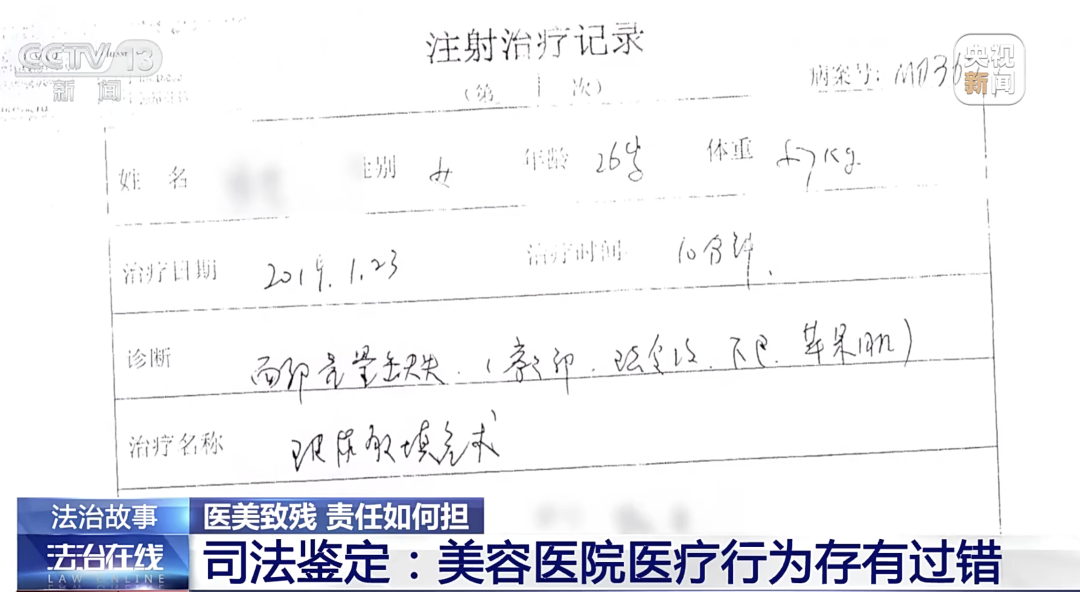 CCTV 13
新闻
央视
新闻
注射治疗记录
(第 1 次)
病案号: M036
姓名 性别 女 年龄 26岁 体重 57kg.
治疗日期 2019.1.23 治疗时间 10分钟.
诊断 面部容量缺失.(额部. 下巴. 苹果肌)
治疗名称 玻尿酸填充术
法治故事
医美致残 责任如何担
法治在线
LAW ONLINE
司法鉴定：美容医院医疗行为存有过错